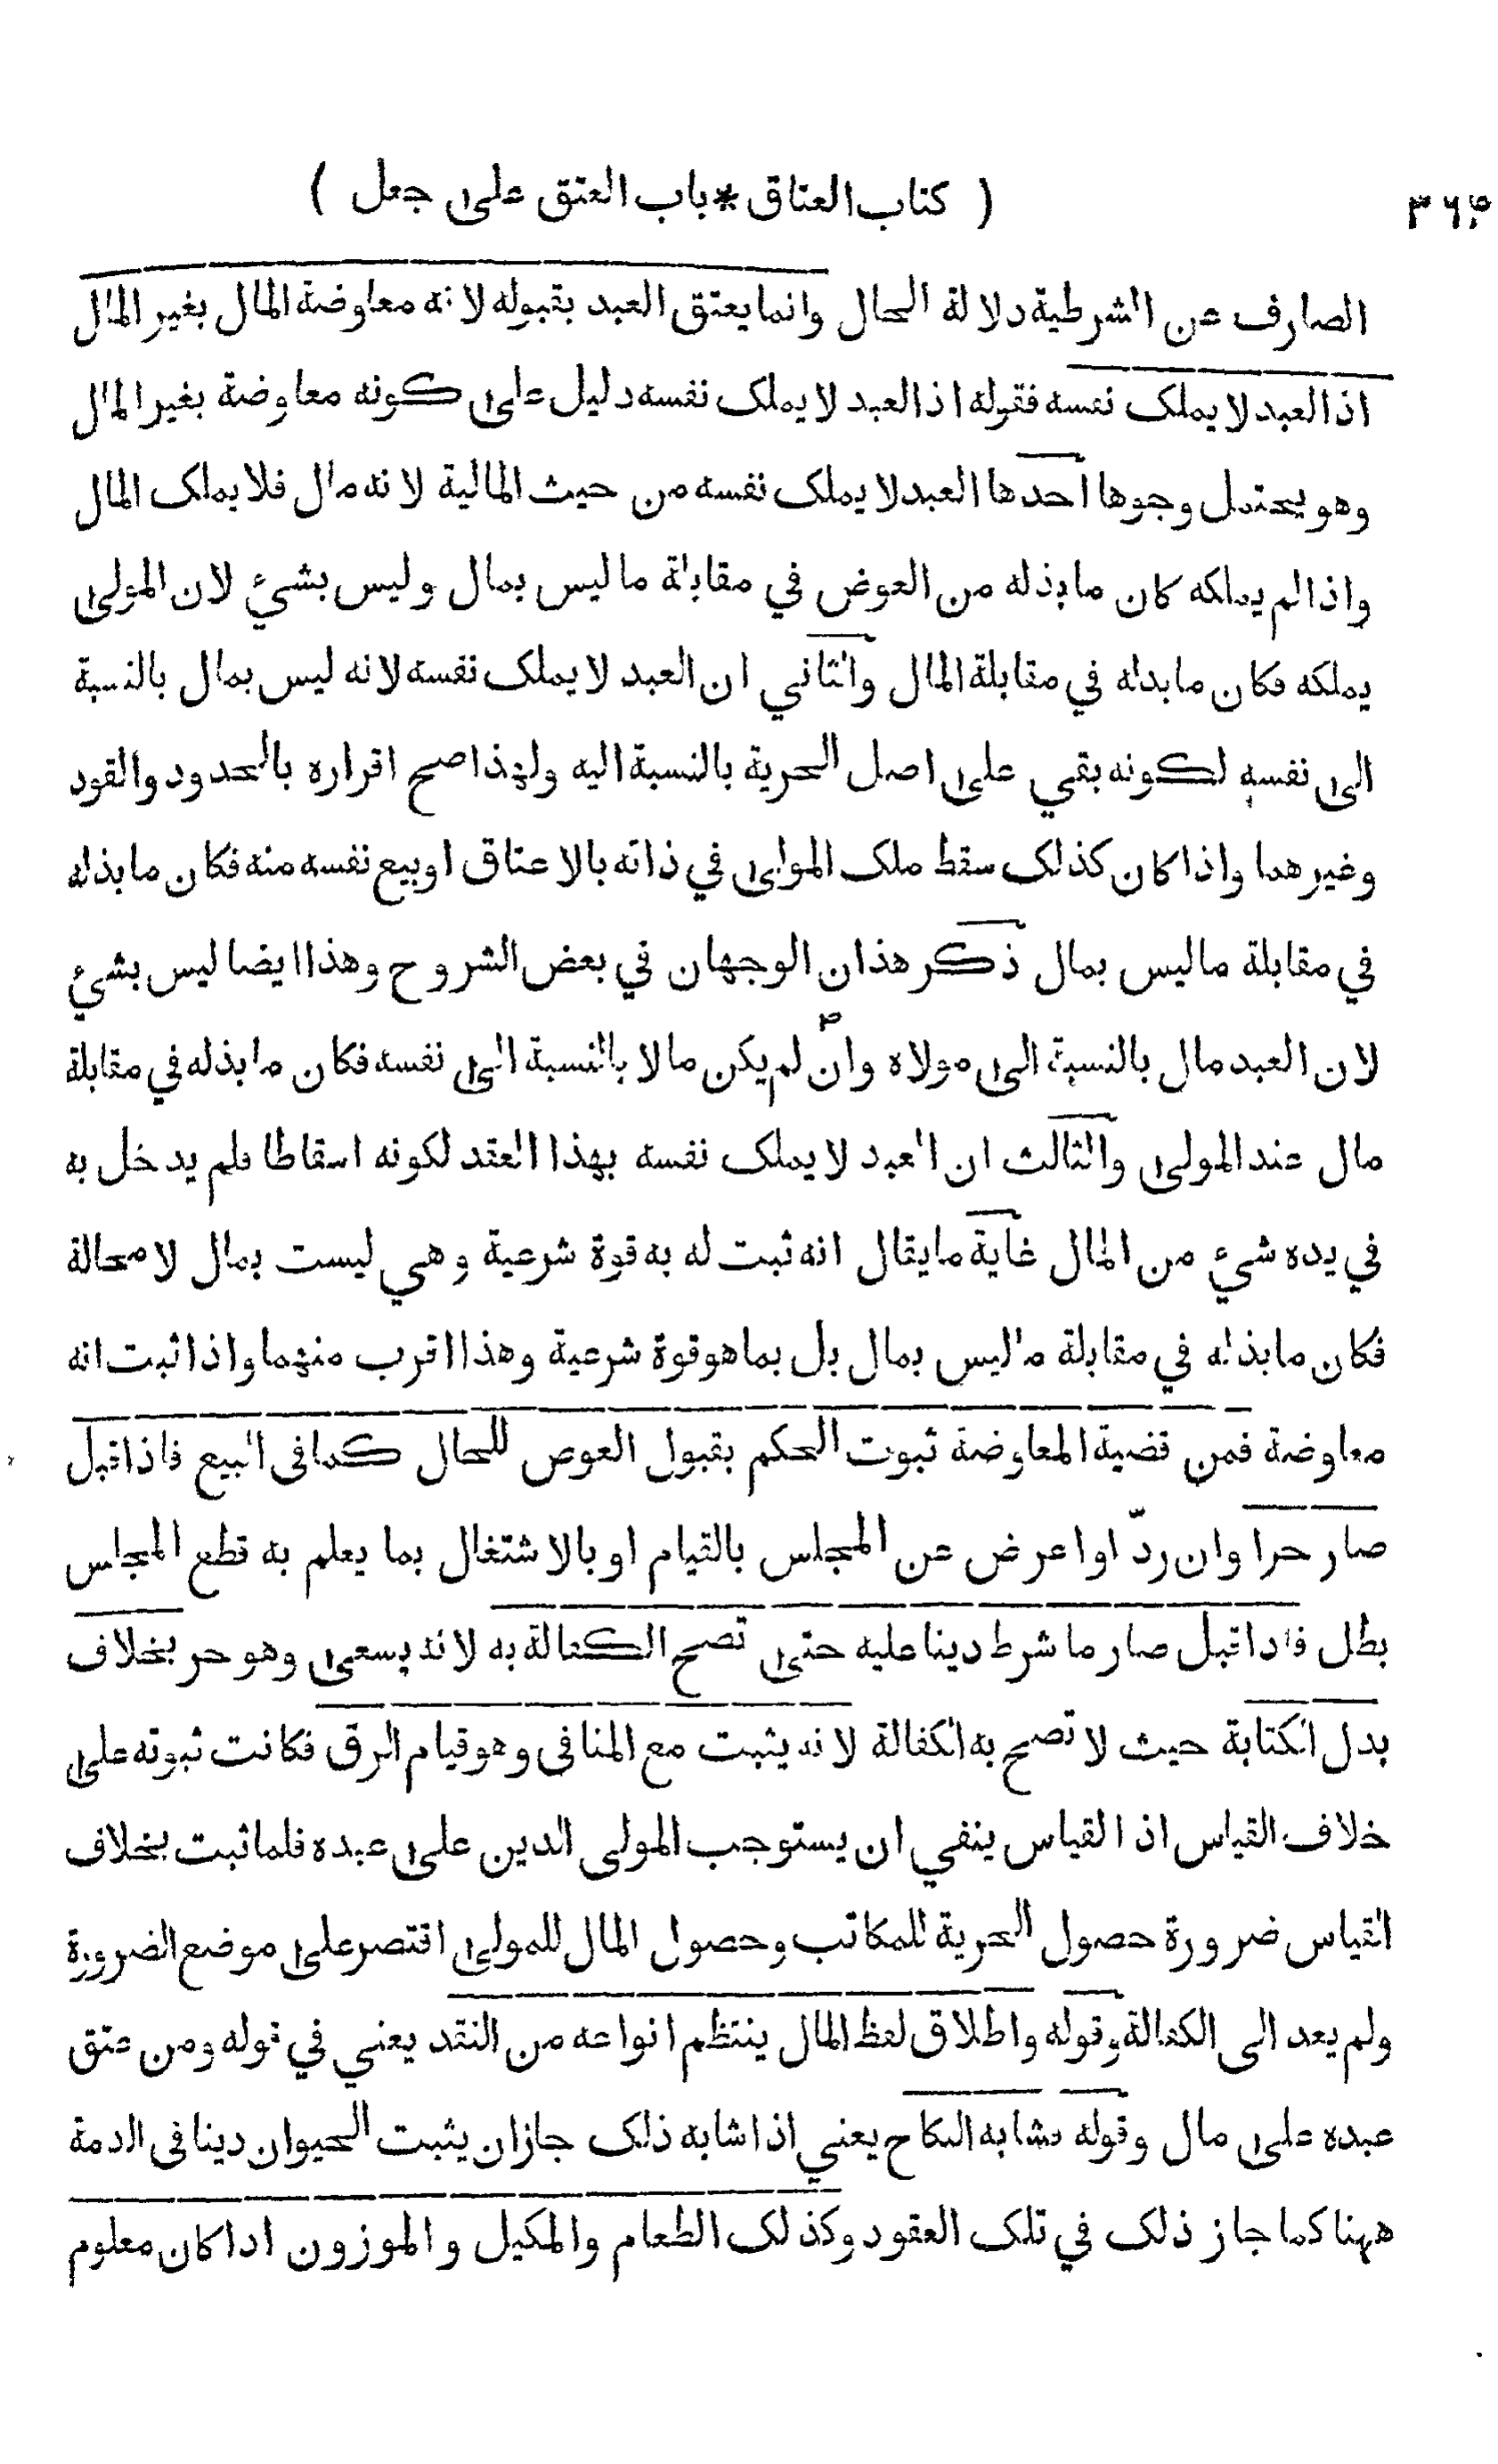 ( كتاب العتاق * باب العتق على جعل ) ٣٦۴
الصارف عن الشرطية دلالة الحال وانما يعتق العبد بقبوله لانه معاوضة المال بغير المال
اذ العبد لا يملك نفسه فقوله اذ العبد لا يملك نفسه دليل على كونه معاوضة بغير المال
وهو يحتمل وجوها احدها العبد لا يملك نفسه من حيث المالية لانه مال فلا يملك المال
واذا لم يملكه كان ما بذله من العوض في مقابلة ما ليس بمال وليس بشيء لان المولى
يملكه فكان ما بدله في مقابلة المال والثاني ان العبد لا يملك نفسه لانه ليس بمال بالنسبة
الى نفسه لكونه بقي على اصل الحرية بالنسبة اليه ولهذا صح اقراره بالحدود والقود
وغيرهما واذا كان كذلك سقط ملك المولى في ذاته بالاعتاق او بيع نفسه منه فكان ما بذله
في مقابلة ما ليس بمال ذكر هذان الوجهان في بعض الشروح وهذا ايضا ليس بشيء
لان العبد مال بالنسبة الى مولاه وان لم يكن مالا بالنسبة الى نفسه فكان ما بذله في مقابلة
مال عند المولى والثالث ان العبد لا يملك نفسه بهذا العقد لكونه اسقاطا فلم يدخل به
في يده شيء من المال غاية ما يقال انه ثبت له به قوة شرعية وهي ليست بمال لا محالة
فكان ما بذله في مقابلة ما ليس بمال بل بما هو قوة شرعية وهذا اقرب منهما واذا ثبت انه
معاوضة فمن قضية المعاوضة ثبوت الحكم بقبول العوض للحال كما فى البيع فاذا قبل
صار حرا وان ردّ او اعرض عن المجلس بالقيام او بالاشتغال بما يعلم به قطع المجلس
بطل فاذا قبل صار ما شرط دينا عليه حتى تصح الكفالة به لانه يسعى وهو حر بخلاف
بدل الكتابة حيث لا تصح به الكفالة لانه يثبت مع المنافى وهو قيام الرق فكانت ثبوته على
خلاف القياس اذ القياس ينفي ان يستوجب المولى الدين على عبده فلما ثبت بخلاف
القياس ضرورة حصول الحرية للمكاتب وحصول المال للمولى اقتصر على موضع الضرورة
ولم يعد الى الكفالة وقوله واطلاق لفظ المال ينتظم انواعه من النقد يعني في قوله ومن عتق
عبده على مال وقوله فشابه النكاح يعني اذا شابه ذلك جاز ان يثبت الحيوان دينا فى الذمة
ههنا كما جاز ذلك في تلك العقود وكذلك الطعام والمكيل والموزون اذا كان معلوم